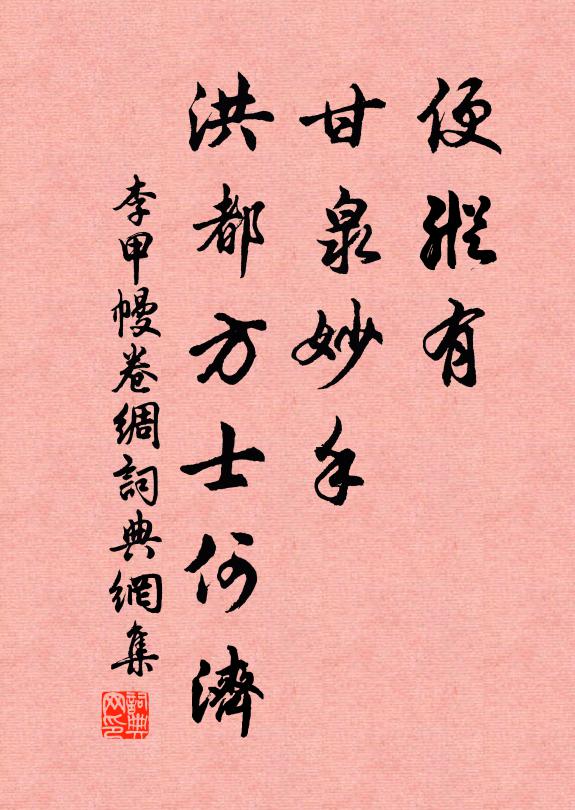 便縱有
甘泉妙手
洪都方士何濟
李甲幔卷綢詞典網集
詞典网印